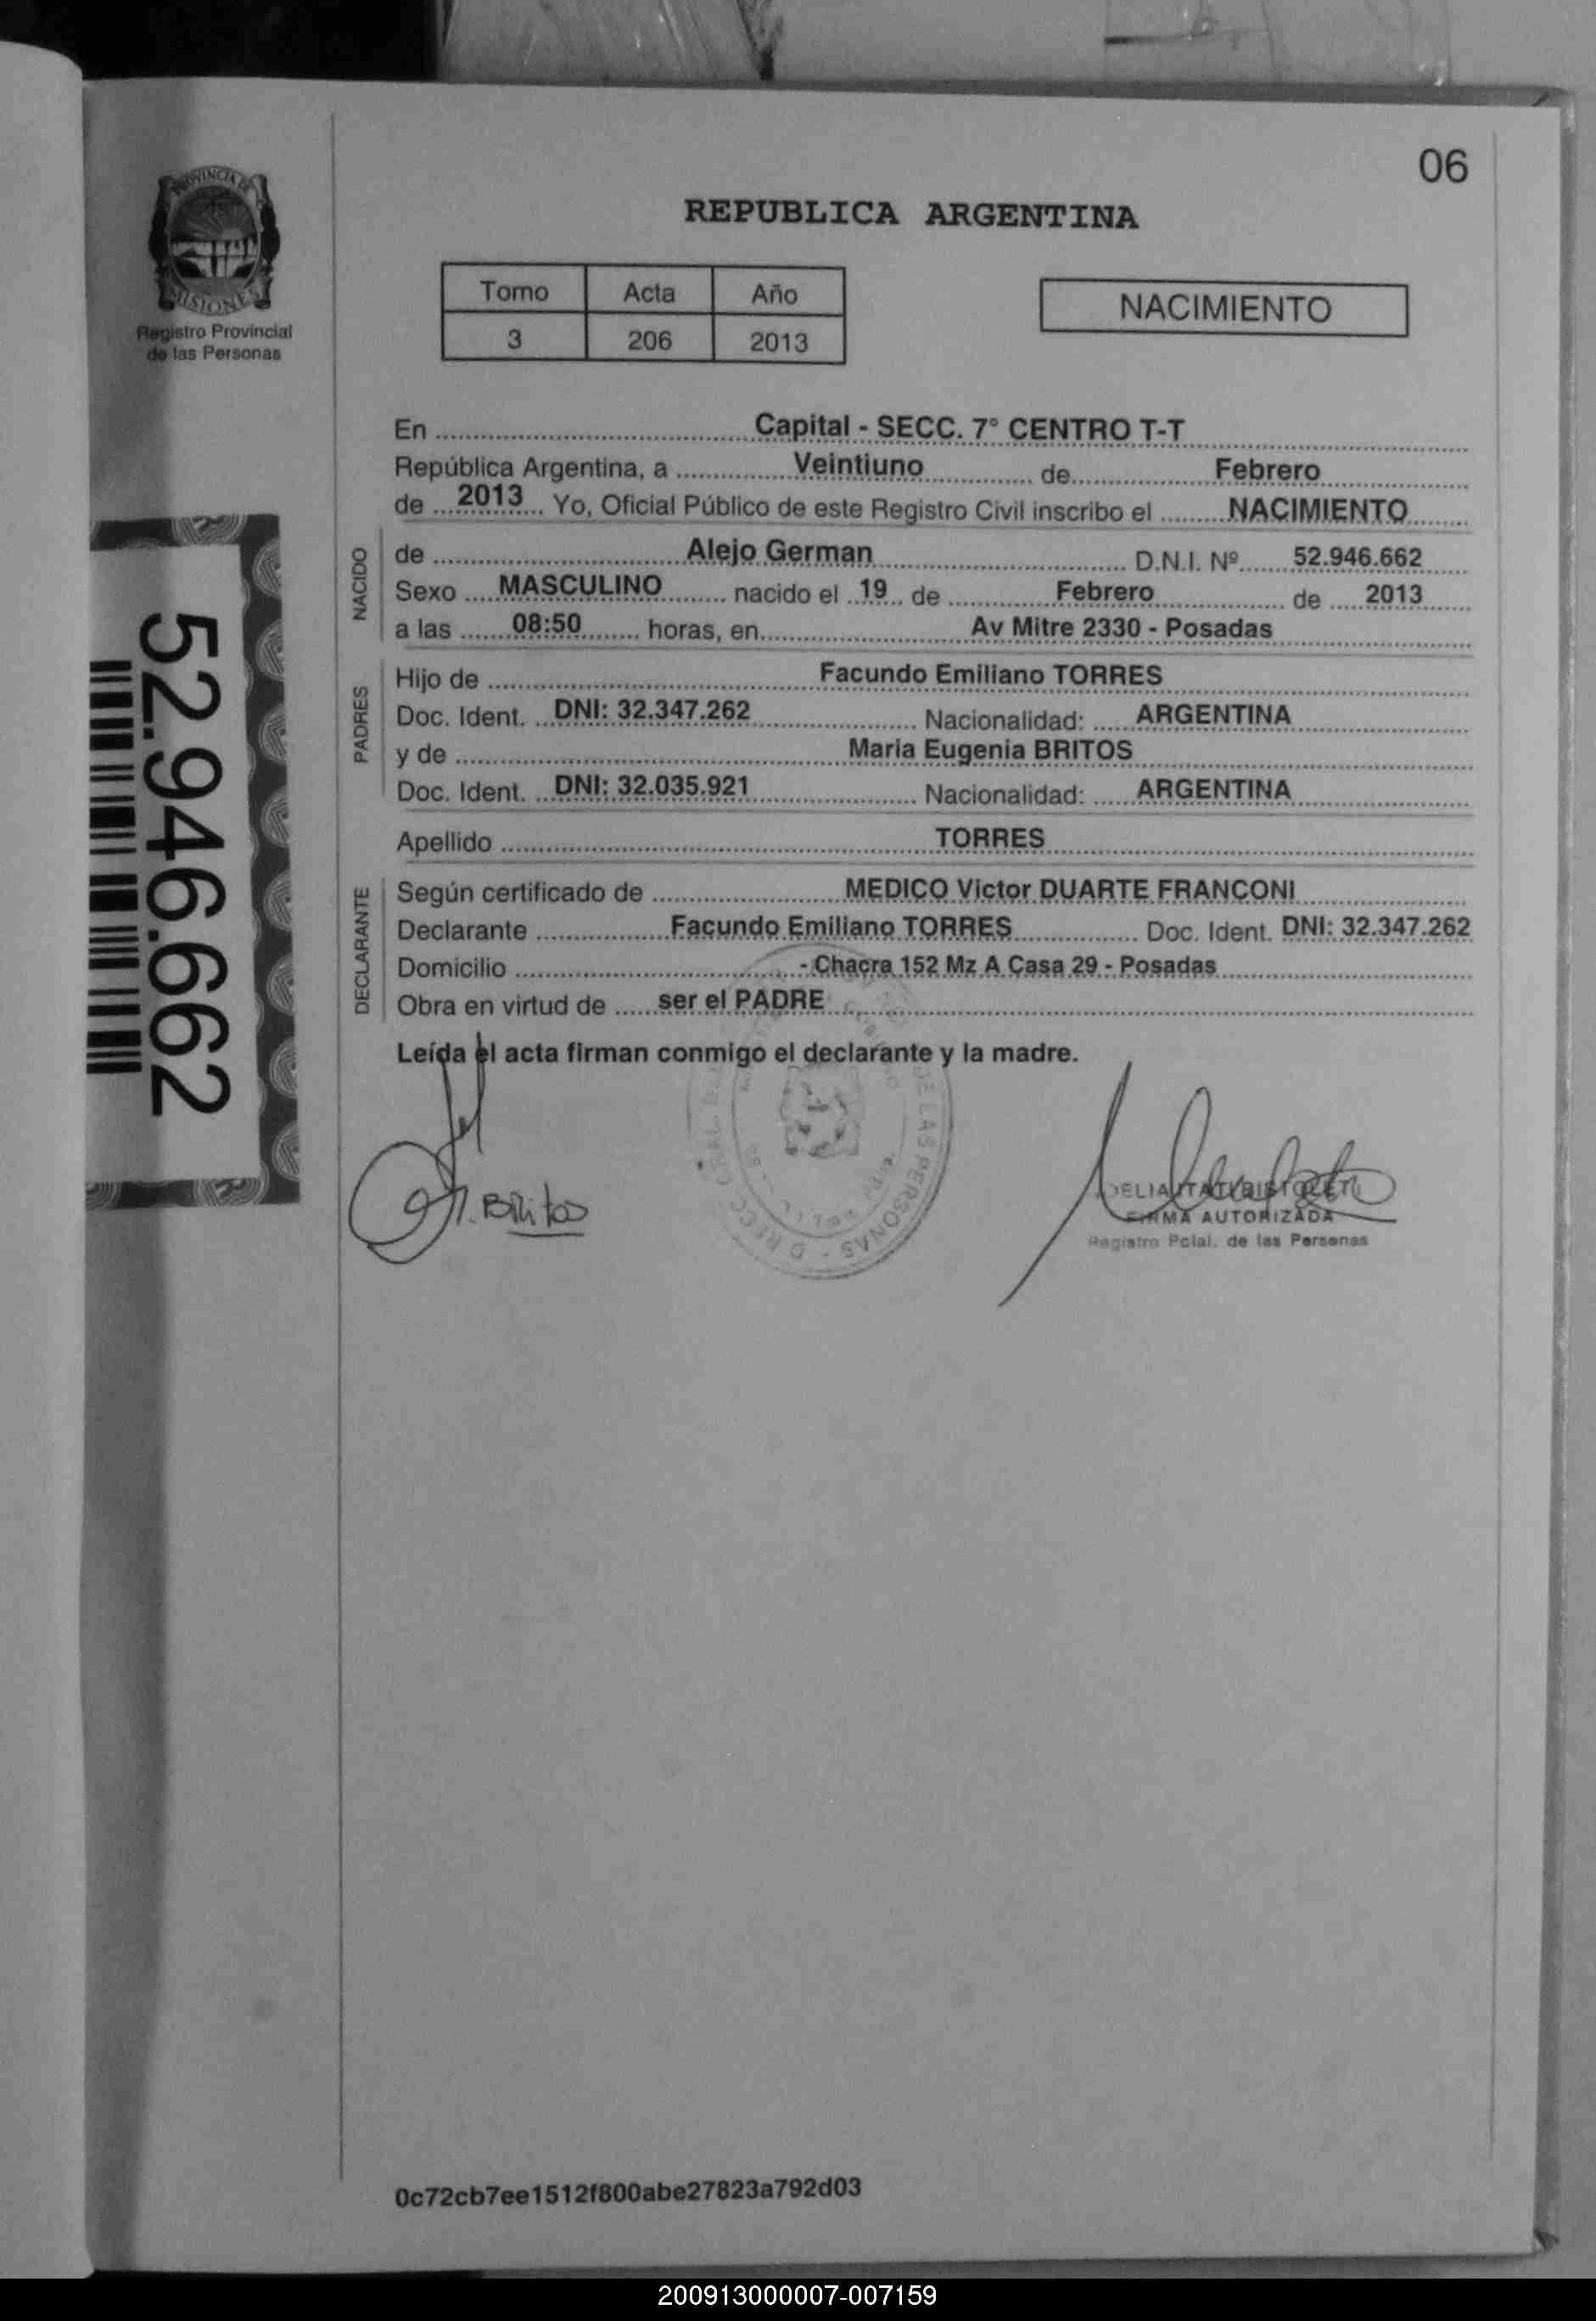 06
PROVINCIA DE
MISIONES
Registro Provincial
de las Personas
REPUBLICA ARGENTINA
Tomo Acta Año
3 206 2013
NACIMIENTO
En Capital - SECC. 7° CENTRO T-T
República Argentina, a Veintiuno de Febrero
de 2013 Yo, Oficial Público de este Registro Civil inscribo el NACIMIENTO
NACIDO
de Alejo German D.N.I. Nº 52.946.662
Sexo MASCULINO nacido el 19 de Febrero de 2013
a las 08:50 horas, en Av Mitre 2330 - Posadas
PADRES
Hijo de Facundo Emiliano TORRES
Doc. Ident. DNI: 32.347.262 Nacionalidad: ARGENTINA
y de Maria Eugenia BRITOS
Doc. Ident. DNI: 32.035.921 Nacionalidad: ARGENTINA
Apellido TORRES
DECLARANTE
Según certificado de MEDICO Victor DUARTE FRANCONI
Declarante Facundo Emiliano TORRES Doc. Ident. DNI: 32.347.262
Domicilio - Chacra 152 Mz A Casa 29 - Posadas
Obra en virtud de ser el PADRE
Leída el acta firman conmigo el declarante y la madre.
52.946.662
Britos
DE LAS PERSONAS
FIRMA AUTORIZADA
Registro Pcial. de las Personas
0c72cb7ee1512f800abe27823a792d03
200913000007-007159